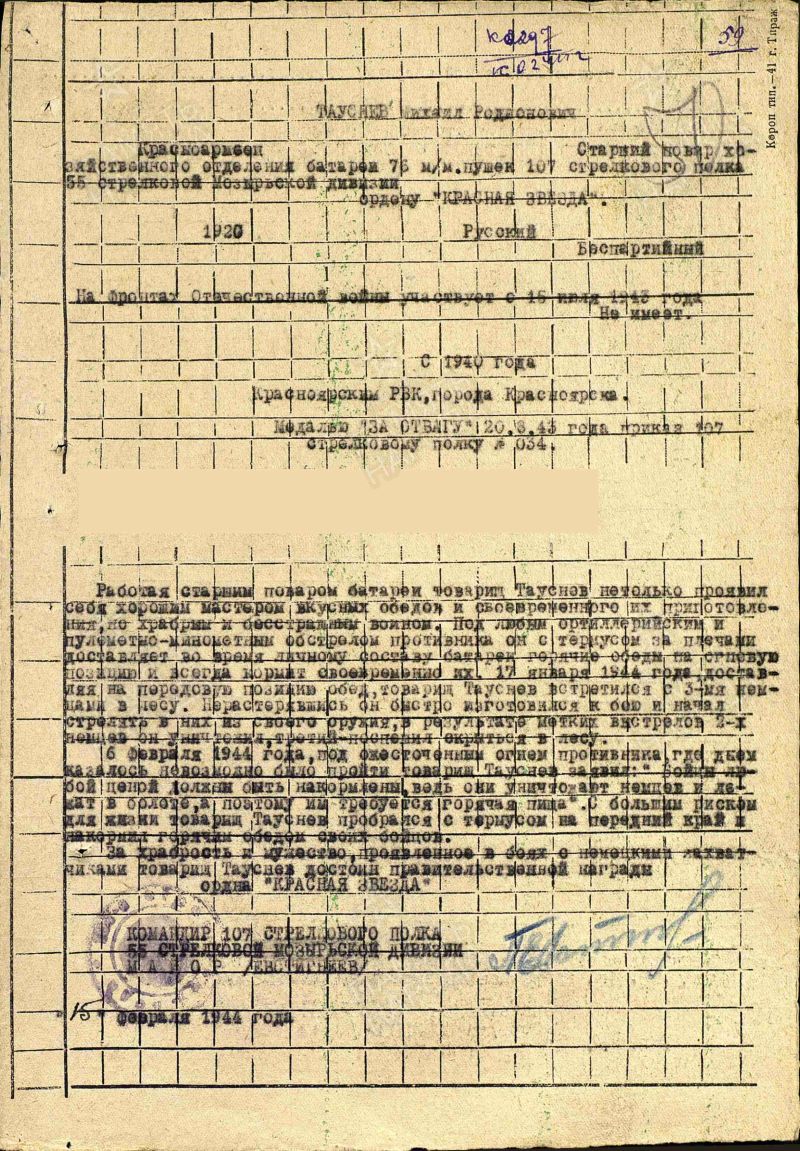 59
ТАУСНЕВ Михаил Родионович
Красноармеец Старший повар хо-
зяйственного отделения батареи 76 м/м.пушек 107 стрелкового полка
55 стрелковой Мозырьской дивизии
ордену "КРАСНАЯ ЗВЕЗДА".
1920 Русский
Беспартийный
На фронтах Отечественной войны участвует с 15 июля 1943 года
Не имеет.
С 1940 года
Красноярским РВК,города Красноярска.
Медалью "ЗА ОТВАГУ" 20.8.43 года приказ 107
стрелковому полку № 034.
Работая старшим поваром батареи товарищ Тауснев нетолько проявил
себя хорошим мастером вкусных обедов и своевременного их приготовле-
ния,но храбрым и бесстрашным воином. Под любым ортиллерийским и
пулеметно-минометным обстрелом противника он с термусом за плечами
доставляет во время личному составу батареи горячие обеды на огневую
позицию и всегда кормит своевременно их. 17 января 1944 года,достав-
ляя на передовую позицию обед,товарищ Тауснев встретился с 3-мя нем-
цами в лесу. Нерастерявшись он быстро изготовился к бою и начал
стрелять в них из своего оружия,в результате метких выстрелов 2-х
немцев он уничтожил,третий поспешил скрыться в лесу.
6 февраля 1944 года,под ожесточенным огнем противника,где днем
казалось невозможно было пройти товарищ Тауснев заявил:" Бойцы лю-
бой ценой должны быть накормлены,ведь они уничтожают немцев и ле-
жат в болоте,а поэтому им требуется горячая пища".С большим риском
для жизни товарищ Тауснев пробрался с термусом на передний край и
накормил горячим обедом своих бойцов.
За храбрость и мужество,проявленное в боях с немецкими захват-
чиками товарищ Тауснев достоин правительственной награды
ордна "КРАСНАЯ ЗВЕЗДА"
КОМАНДИР 107 СТРЕЛКОВОГО ПОЛКА
55 СТРЕЛКОВОЙ МОЗЫРЬСКОЙ ДИВИЗИИ
М А Й О Р /ЕВСТИГНЕЕВ/
"15" февраля 1944 года
Кероп тип.—41 г. Тираж